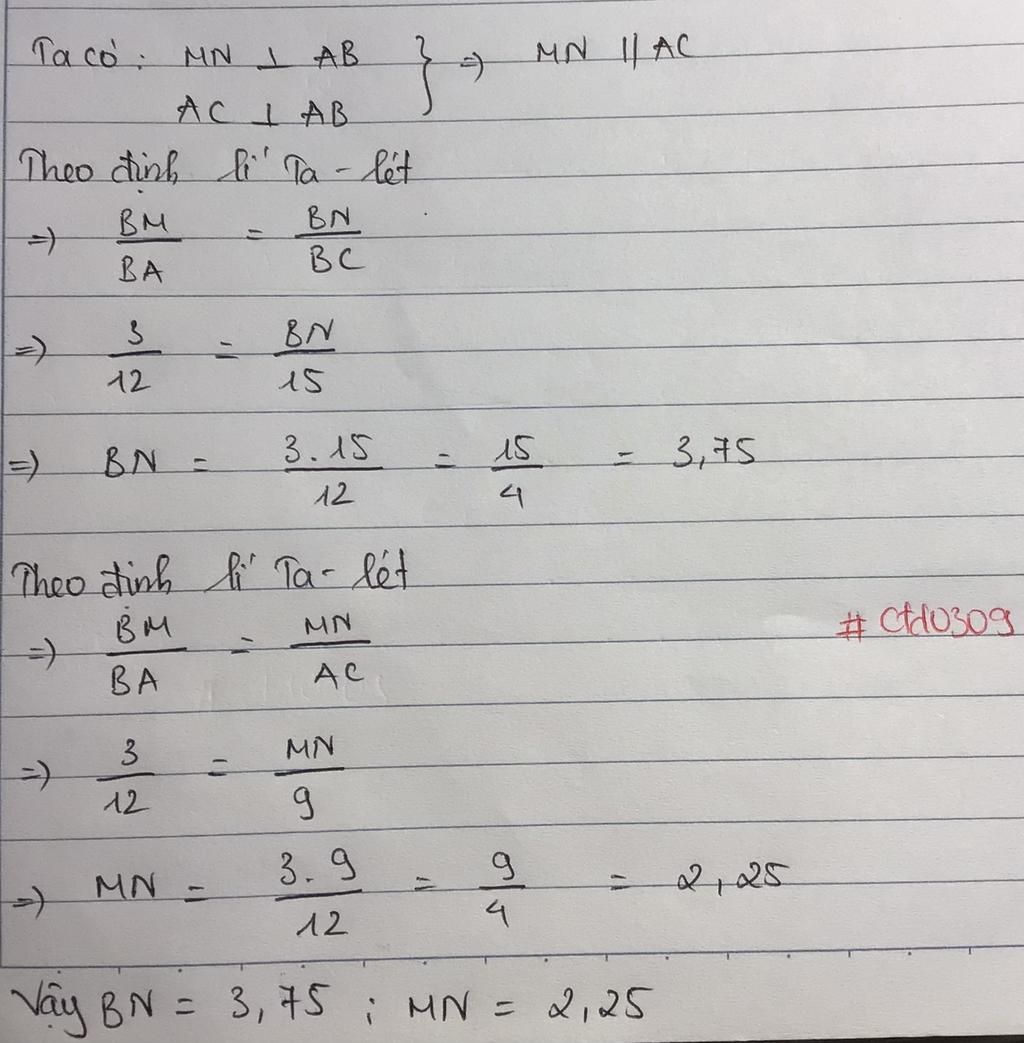 Ta có: MN ⊥ AB } => MN // AC
AC ⊥ AB
Theo định lí Ta-lét
=> BM/BA = BN/BC
=> 3/12 = BN/15
=> BN = 3.15/12 = 15/4 = 3,75
Theo định lí Ta-lét
=> BM/BA = MN/AC
# Ctd0309
=> 3/12 = MN/9
=> MN = 3.9/12 = 9/4 = 2,25
Vậy BN = 3,75 ; MN = 2,25